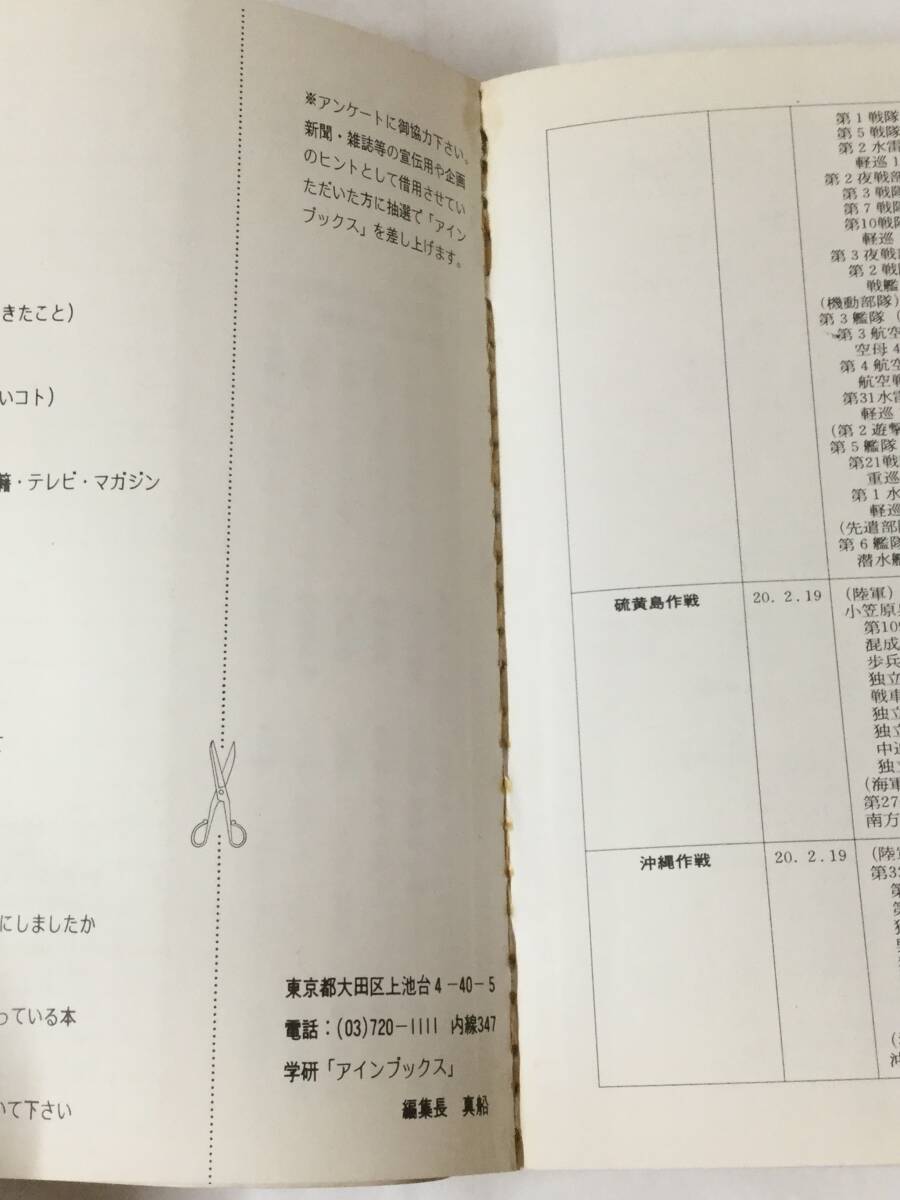 ※アンケートに御協力下さい。
新聞・雑誌等の宣伝用や企画
のヒントとして借用させてい
ただいた方に抽選で「アイン
ブックス」を差し上げます。
きたこと)
いコト)
籍・テレビ・マガジン
にしましたか
っている本
いて下さい
東京都大田区上池台4-40-5
電話:(03)720-1111 内線347
学研「アインブックス」
編集長 真船
第1戦隊
第5戦隊
第2水雷
軽巡1
第2夜戦部
第3戦隊
第7戦隊
第10戦隊
軽巡
第3夜戦部
第2戦隊
戦艦
(機動部隊)
第3艦隊(
第3航空
空母4
第4航空
航空戦
第31水雷
軽巡
(第2遊撃
第5艦隊
第21戦
重巡
第1水
軽巡
(先遣部隊
第6艦隊
潜水艦
硫黄島作戦 20.2.19 (陸軍)
小笠原兵
第109
混成
歩兵
独立
戦車
独立
独立
中迫
独立
(海軍
第27
南方
沖縄作戦 20.2.19 (陸軍
第32
第
第
独